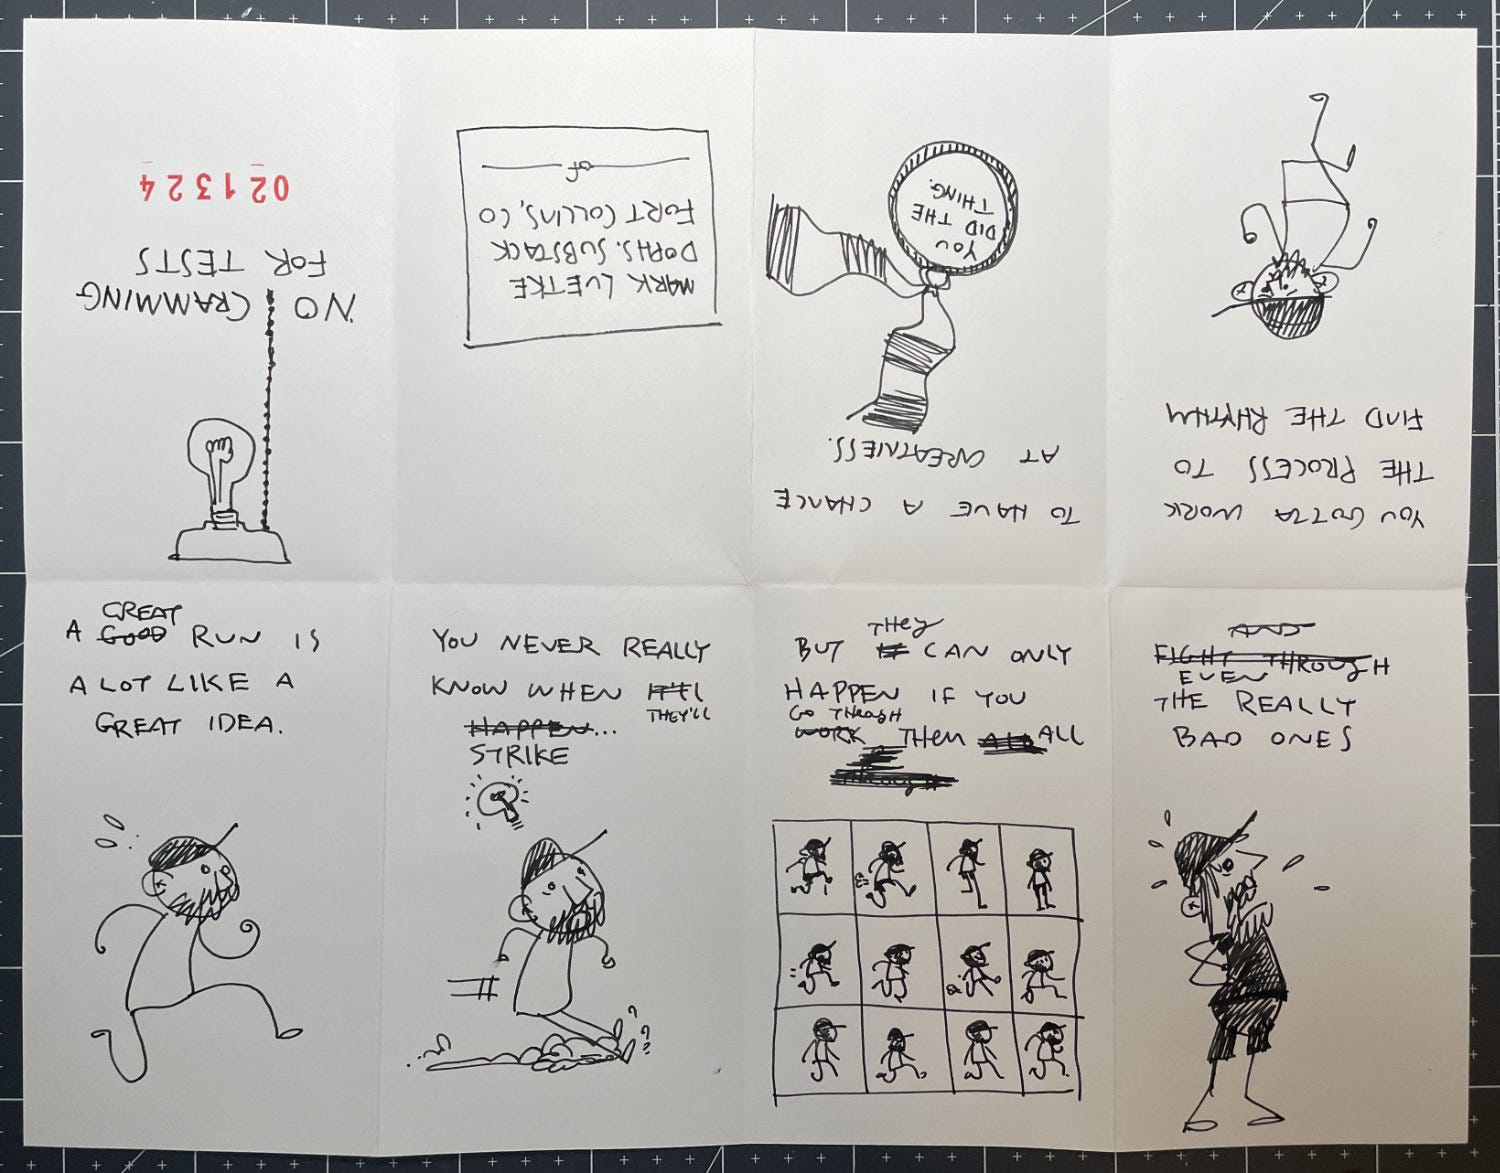 NO CRAMMING
FOR TESTS
021324
GREAT
A GOOD RUN IS
A LOT LIKE A
GREAT IDEA.
YOU NEVER REALLY
KNOW WHEN IT'LL
THEY'LL
HAPPEN...
STRIKE
THEY
BUT IT CAN ONLY
HAPPEN IF YOU
GO THROUGH
WORK THEM ALL ALL
AND
FIGHT THROUGH
EVEN
THE REALLY
BAD ONES
YOU GOTTA WORK
THE PROCESS TO
FIND THE RHYTHM
TO HAVE A CHANCE
AT GREATNESS.
YOU
DID THE
THING.
MARK LUETKE
DOPHS.SUBSTACK
FORT COLLINS, CO
OF